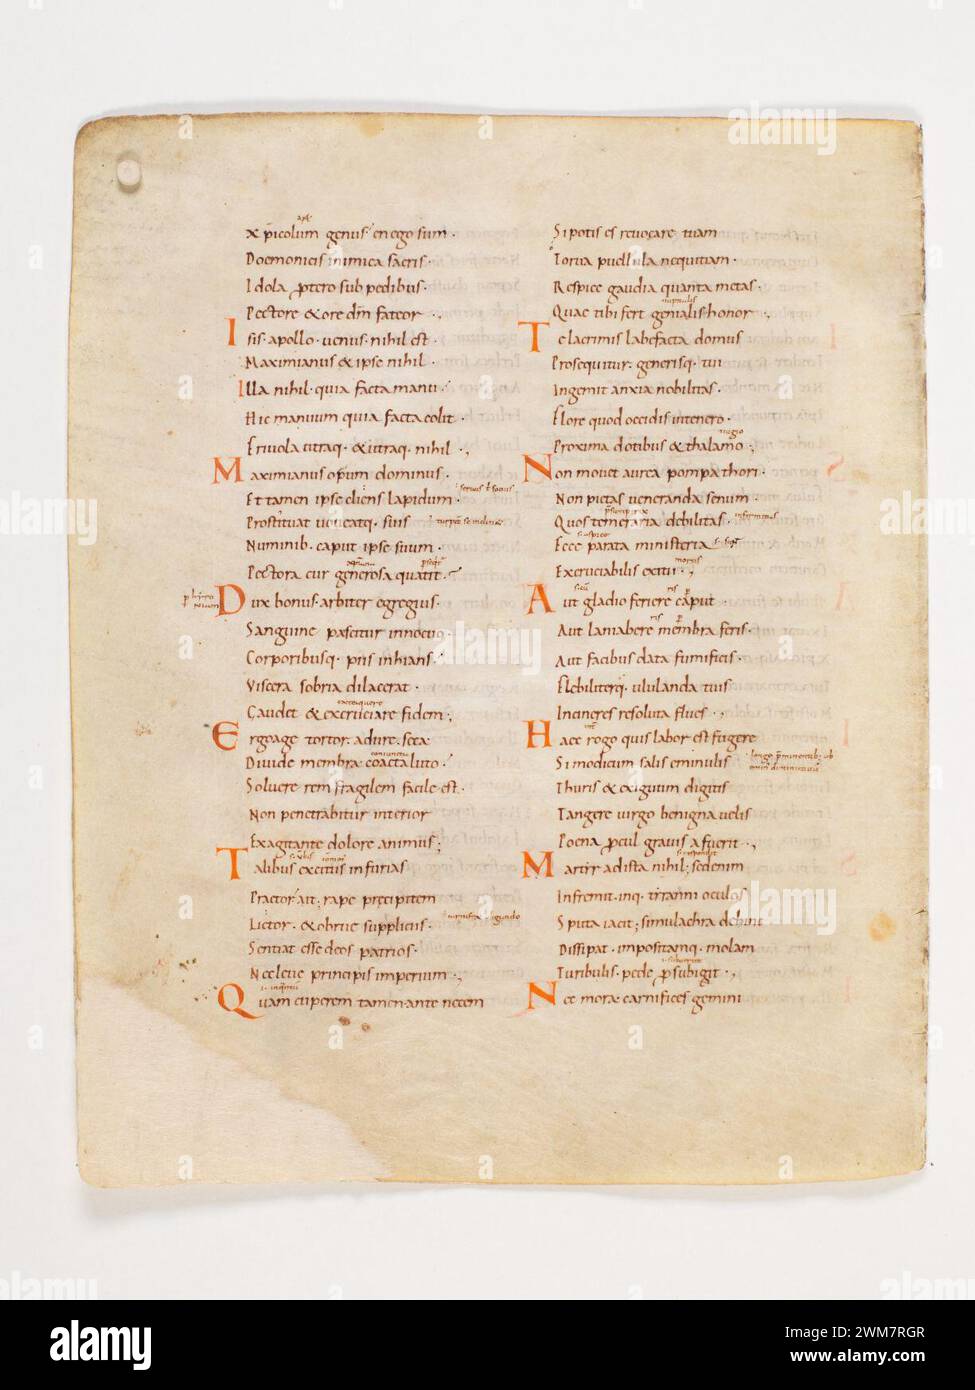 x p̄icolum genus· en ego sum·
Doemonicis inimica sacris·
Idola ꝓtero sub pedibus·
Pectore & ore dm̄ fateor·,
Isis· apollo· uenus· nihil est·
Maximianus & ipse nihil·
Illa nihil· quia facta manu·
Hic manuum quia facta colit·
Friuola utraq·, & utraq· nihil·,
Maximianus opum dominus·
Et tamen ipse cliens lapidum·
Prostituat uoueatq· suis
Numinib· caput ipse suum·
Pectora cur generosa quatit·
Dux bonus· arbiter egregius·
Sanguine pascitur innocuo·
Corporibusq· piis inhians·
Viscera sobria dilacerat·
Gaudet & excruciare fidem·,
Ergo age tortor· adure· seca
Diuide membra coacta luto·
Soluere rem fragilem facile est·
Non penetrabitur interior
Exagitante dolore animus;
Talibus excitus in furias
Praetor ait; rape precipitem
Lictor· & obrue suppliciis·
Sentiat esse deos patrios·
Nec leue principis imperium·,
Quam cuperem tamen ante necem
Si potis es reuocare tuam
Torua puellula nequitiam·
Respice gaudia quanta metas·
Quae tibi fert genialis honor·,
nuptialis
Te lacrimis labefacta domus
Prosequitur· generisq· tui
Ingemit anxia nobilitas·
Flore quod occidis in tenero·
Proxima dotibus & thalamo·,
Non mouet aurea pompa thori·
Non pietas ueneranda senum·
Quos temeraria debilitas·
Ecce parata ministeria
Excruciabilis exitii·,
mortis
Aut gladio feriere caput·
Aut laniabere membra feris·
Aut facibus data fumificis·
Flebiliterq· ululanda tuis
In cineres resoluta flues·,
Haec rogo quis labor est fugere
Si modicum salis eminulis
Thuris & exiguum digitis
Tangere uirgo benigna uelis
Poena ꝓcul grauis afuerit·,
Martir ad ista nihil; sed enim
Infremit· inq· tiranni oculos
Sputa iacit; simulachra dehinc
Dissipat· impositamq· molam
Turibulis· pede ꝓsubigit·,
Nec mora carnifices gemini
alamy
Image ID: 2WM7RGR
www.alamy.com